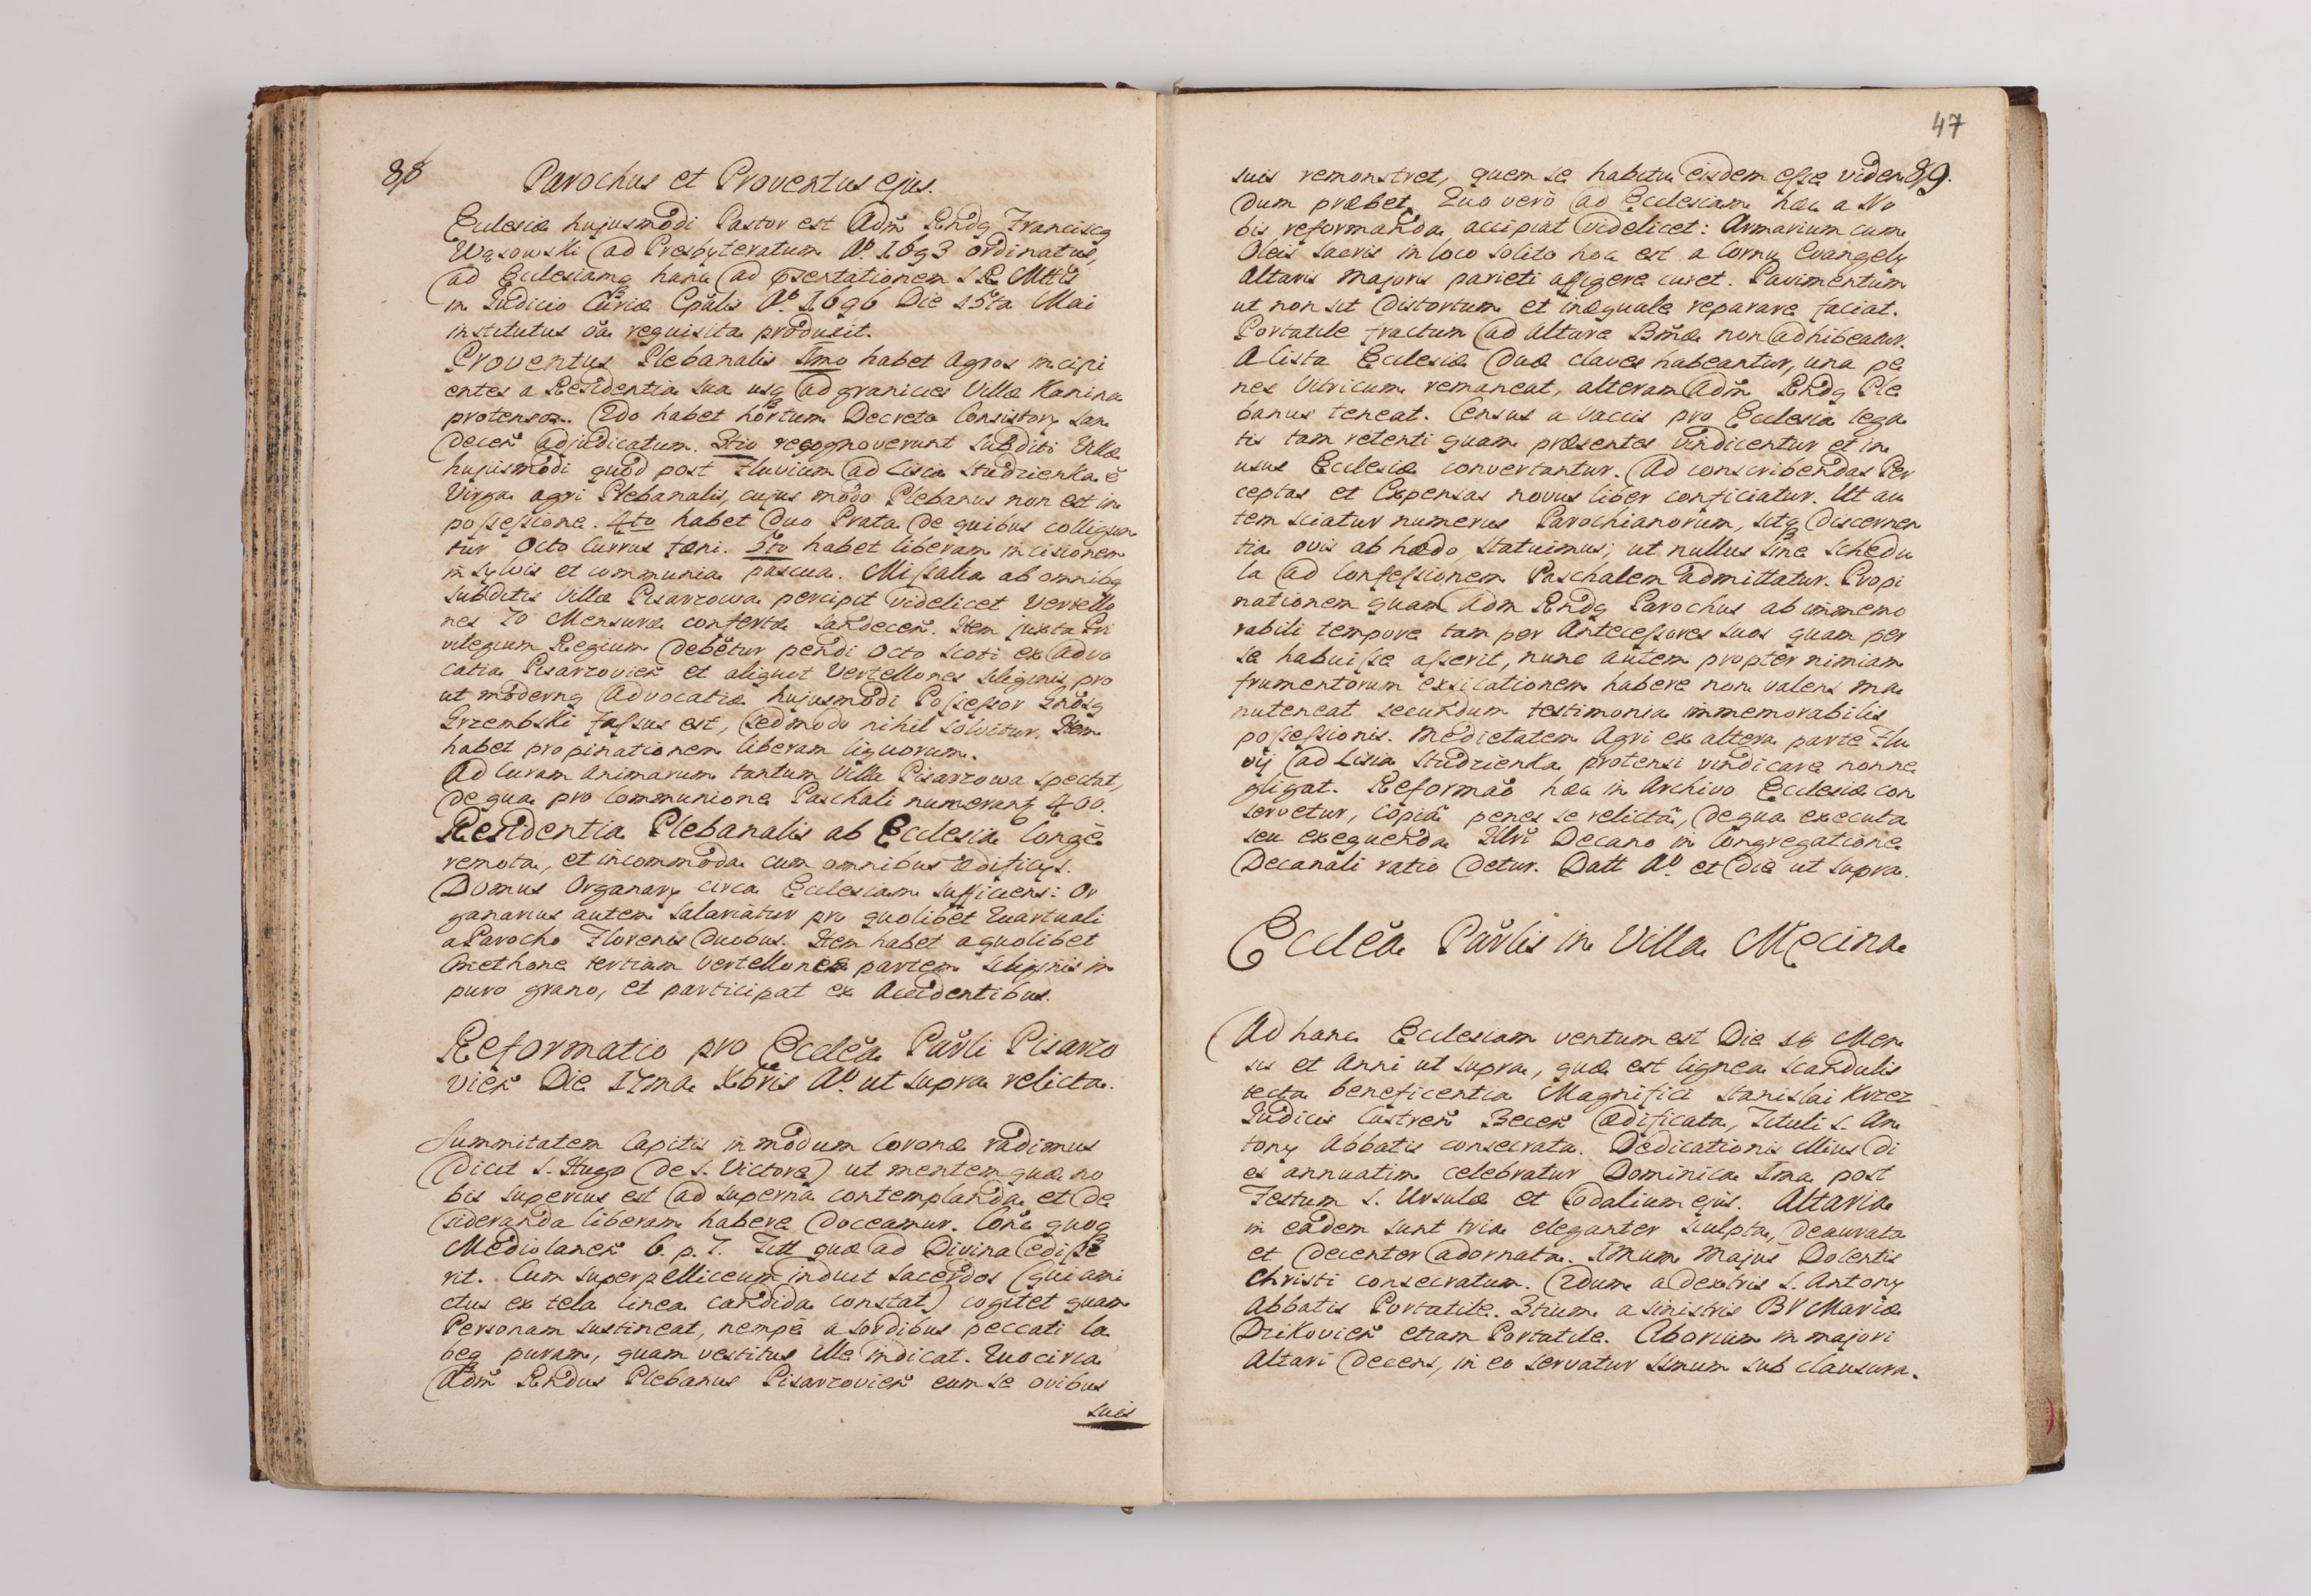 88
Parochus et Proventus ejus.
Ecclesiæ hujusmodi Pastor est Adm̃ Rndq Franciscq
Wąsowski ad Presbyteratum Aº 1693 ordinatus,
ad Ecclesiamq hanc ad pr̃sentationem S R Mttis
in Judicio Curiæ Epalis Aº. 1696 Die 15ta Mai
institutus oã requisita produxit.
Proventus Plebanalis Imo habet Agros incipi
entes a Residentia sua usq ad granicies Villæ Kanina
protensos. 2do habet hortum Decreto Consistory San
decen̄ adjudicatum. 3tio recognoverunt Subditi Villæ
hujusmodi quod post Fluvium ad Lisia Studzienka ẽ
Virga agri Plebanalis, cujus modo Plebanus non est in
possessione. 4to habet duo Prata de quibus colligun
tur Octo Currus fæni. 5to habet liberam incisionem
in sylvis et communia pascua. Missalia ab omnibq
subditis Villæ Pisarzowa percipit videlicet Vertello
nes 70 Mensuræ confertæ Sandecen̄. Item juxta Pri
vilegium Regium debetur pendi Octo Scoti ex Advo
catia Pisarzovien̄ et aliquot Vertellones Siliginis, pro
ut modernq Advocatiæ hujusmodi Possessor Gnosq
Grzembski fassus est, sed modo nihil solvitur. Item
habet propinationem liberam liquorum.
Ad Curam Animarum tantum Villa Pisarzowa spectat,
de qua pro Communione Paschali numerantq 400.
Residentia Plebanalis ab Ecclesia longè
remota, et incommoda cum omnibus ædificijs.
Domus Organary circa Ecclesiam sufficiens: Or
ganarius autem salariatur pro quolibet Quartuali
a Parocho Florenis duobus. Item habet a quolibet
Cmethone tertiam Vertellones partem Siliginis in
puro grano, et participat ex Accidentibus.
Reformatio pro Ecclẽa Parli Pisarzo
vien̄ Die 17ma Xbris Aº ut supra relicta.
Summitatem Capitis in modum Coronæ radimus
(dicit S. Hugo de S. Victore) ut mentem quæ no
bis superius est ad superna contemplanda et de
sideranda liberam habere doceamur. Conc quoq
Mediolanen̄ 6. p. 7. Titt quæ ad Divina edisse
rit. Cum superpelliceum induit sacerdos (qui ami
ctus ex tela linea candida constat) cogitet quam
Personam sustineat, nempè a sordibus peccati la
beq puram, quam vestitus ille indicat. Quocirca
Adm̃ Rndus Plebanus Pisarzovien̄ eum se ovibus
suis
47
89.
suis remonstret, quem se habitu eisdem esse viden
dum præbet. Quo verò ad Ecclesiam hæc a No
bis reformanda accipiat videlicet: Armarium cum
Oleis sacris in loco solito hoc est a Cornu Evangely
Altaris Majoris parieti affigere curet. Pavimentum
ut non sit distortum et inæquale reparare faciat.
Portatile fractum ad Altare Bmæ non adhibeatur.
A Cista Ecclesiæ duæ claves habeantur, una pe
nes Vitricum remaneat, alteram Adm̃ Rndq Ple
banus teneat. Census a Vaccis pro Ecclesia lega
tis tam retenti quam præsentes vindicentur et in
usus Ecclesiæ convertantur. Ad conscribendas Per
ceptas et Expensas novus liber conficiatur. Ut au
tem sciatur numerus Parochianorum, sitq discernen
tia ovis ab hædo statuimus; ut nullus sine schedu
la ad Confessionem Paschalem admittatur. Propi
nationem quam Adm Rndq Parochus ab immemo
rabili tempore tam per Antecessores suos quam per
se habuisse asserit, nunc autem propter nimiam
frumentorum exsicationem habere non valens ma
nuteneat secundum testimonia immemorabilis
possessionis. Medietatem Agri ex altera parte Flu
vij ad Lisia Studzienka protensi vindicare non ne
gligat. Reformaõ hæc in Archivo Ecclesiæ con
servetur, copiâ penes se relictâ, de qua executa
seu exequenda Illri Decano in Congregatione
Decanali ratio detur. Datt Aº et Die ut supra.
Ecclẽa Parlis in Villa Męcina
Ad hanc Ecclesiam ventum est Die 18 Men
sis et Anni ut supra, quæ est lignea scandulis
tecta beneficentia Magnifici Stanislai Krzez
Judicis Castren̄ Becen̄ ædificata, Tituli S. An
tony Abbatis consecrata. Dedicationis illius di
es annuatim celebratur Dominica Ima post
Festum S. Ursulæ et Sodalium ejus. Altaria
in eadem sunt tria eleganter sculpta, deaurata
et decenter adornata. Imum Majus Dolentis
Christi consecratum. 2dum a dextris S. Antony
Abbatis Portatile. 3tium a sinistris BV Mariæ
Dzikovien̄ etiam Portatile. Ciborium in majori
Altari decens, in eo servatur SSmum sub clausura.